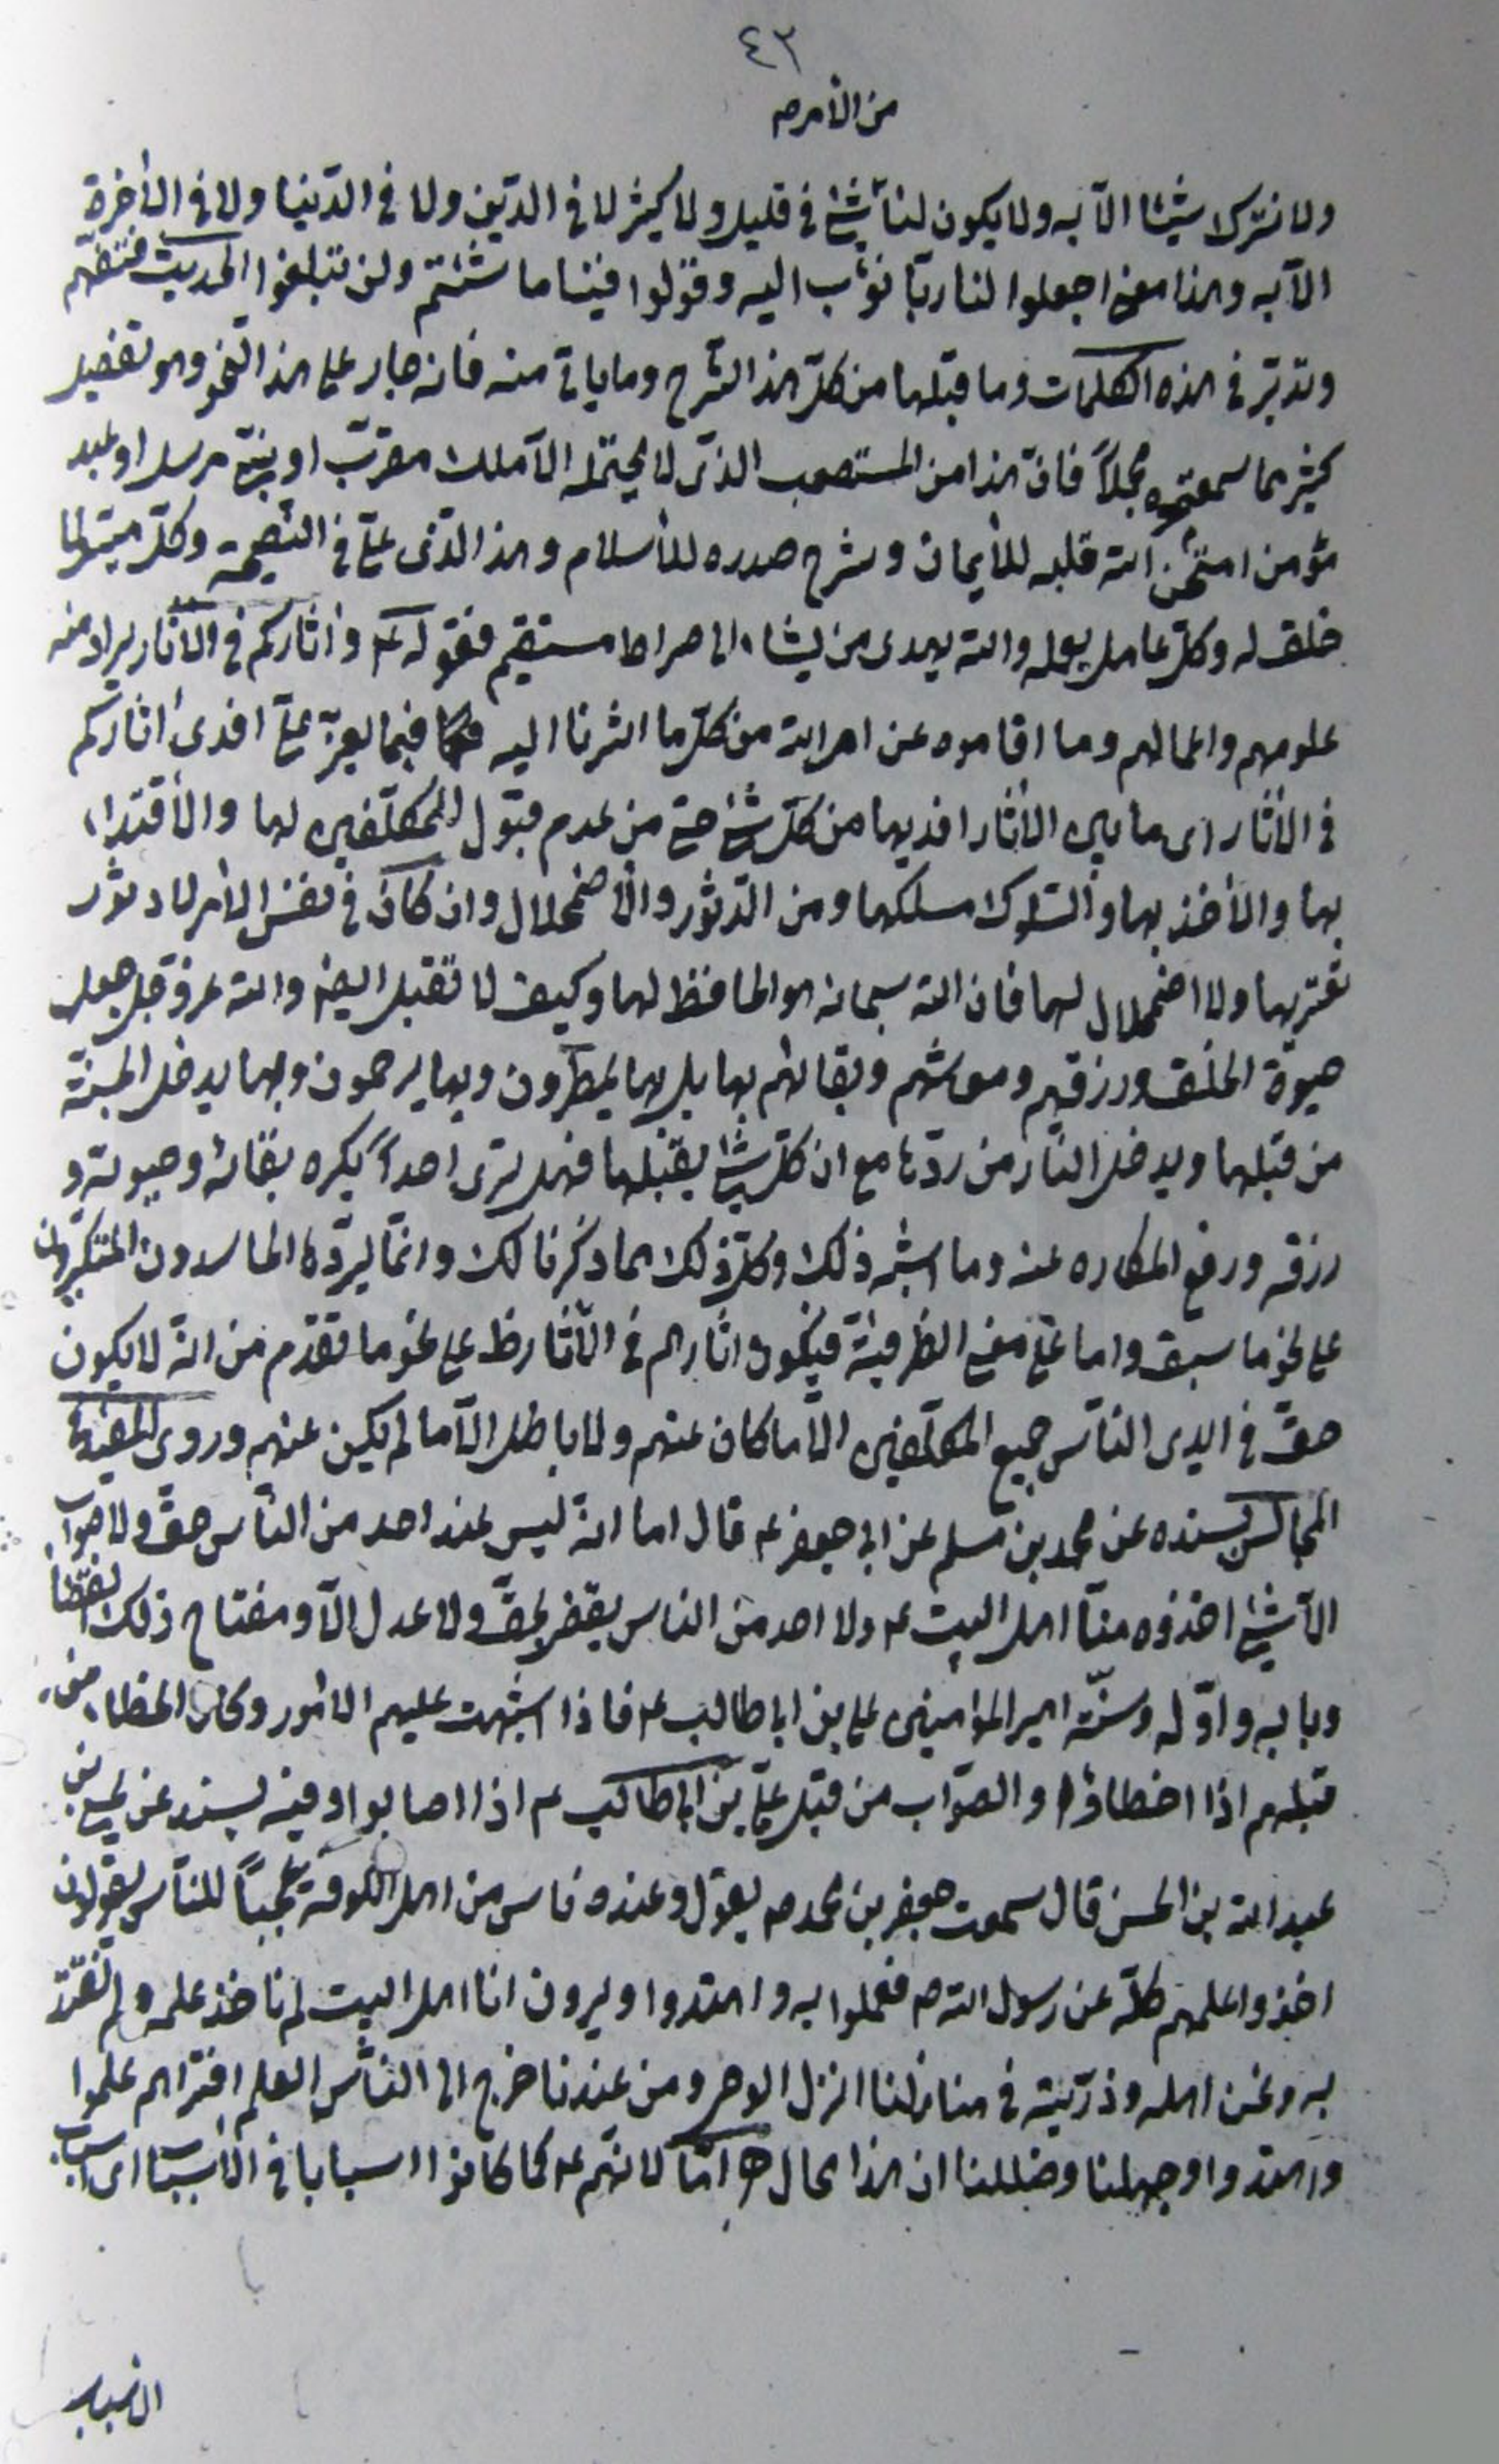 ٤٣
من الأمر صه
ولا نترك شيئا الا به ولا يكون لنا شئ في قليل ولا كثير لا في الدين ولا في الدنيا ولا في الأخرة
الا به وهذا معنى اجعلوا لنا ربا نؤب اليه وقولوا فينا ما شئتم ولن تبلغوا الحديث فتفهم
وتدبر في هذه الكلمات وما قبلها من كل هذا الشرح وما ياتي منه فانه جار على هذا النحو وهو تفصيل
كثير مما سمعتموه مجملاً فان هذا من المستصعب الذى لا يحتمله الا ملك مقرب او نبي مرسل او عبد
مؤمن امتحن الله قلبه للأيمان وشرح صدره للأسلام وهذا الذى علي في النصيحة وكل ميسر لما
خلق له وكل عامل بعمله والله يهدى من يشاء الى صراط مستقيم فقوله ع واثاركم في الآثار يراد منه
علومهم واعمالهم وما اقاموه عن امر الله من كل ما اشرنا اليه فيما يعزّ علي افدى اثاركم
في الاثار اى ما بين الأثار افديها من كل شئ حتى من عدم قبول المكلفين لها والأقتداء
بها والأخذ بها والسلوك مسلكها ومن الدثور والأضمحلال وان كان في نفس الأمر لا دثور
يعتريها ولا اضمحلال لها فان الله سبحانه هو الحافظ لها وكيف لا تقبل ايضا والله عز وجل جعل
حيوة الخلق ورزقهم ومعاشهم وبقائهم بها بل بها يمطرون وبها يرحمون وبها يدخل الجنة
من قبلها ويدخل النار من ردّها مع ان كل شئ يقبلها فهل ترى احداً يكره بقائه وحيوته و
رزقه ورفع المكاره عنه وما اشبه ذلك وكل ذلك مما ذكرنا لك وانما يردّها الحاسدون المتكبرون
على نحو ما سبق واما على معنى الظرفية فيكون اثارهم في الأثار ظ على نحو ما تقدم من انه لا يكون
حق في ايدى الناس جميع المكلفين الا ما كان عنهم ولا باطل الا ما لم يكن عنهم وروى المفيد في
المجالس بسنده عن محمد بن مسلم عن ابي جعفر ع قال اما انه ليس عند احد من الناس حق ولا صواب
الا شئ اخذوه منا اهل البيت ع ولا احد من الناس يقضى بحق ولا عدل الا ومفتاح ذلك القضاء
وبابه واوله وسنته امير المؤمنين علي بن ابي طالب ع فاذا اشتبهت عليهم الأمور وكان الخطاء من
قبلهم اذا اخطاؤا والصواب من قبل علي بن ابي طالب ع اذا اصابوا وفيه بسند عن يحيى بن
عبد الله بن الحسن قال سمعت جعفر بن محمد ص يقول وعنده ناس من اهل الكوفة عجباً للناس يقولون
اخذوا علمهم كله عن رسول الله ص فعملوا به واهتدوا ويرون انا اهل البيت لم ناخذ علمه ولم نقتد
به ونحن اهله وذريته في منازلنا انزل الوحى ومن عندنا خرج الى الناس العلم افتراهم علموا
واهتدوا وجهلنا وضللنا ان هذا محال ه امّا لانهم ع كما كانوا اسبابا في الأسباب اى اسباب
الأسباب